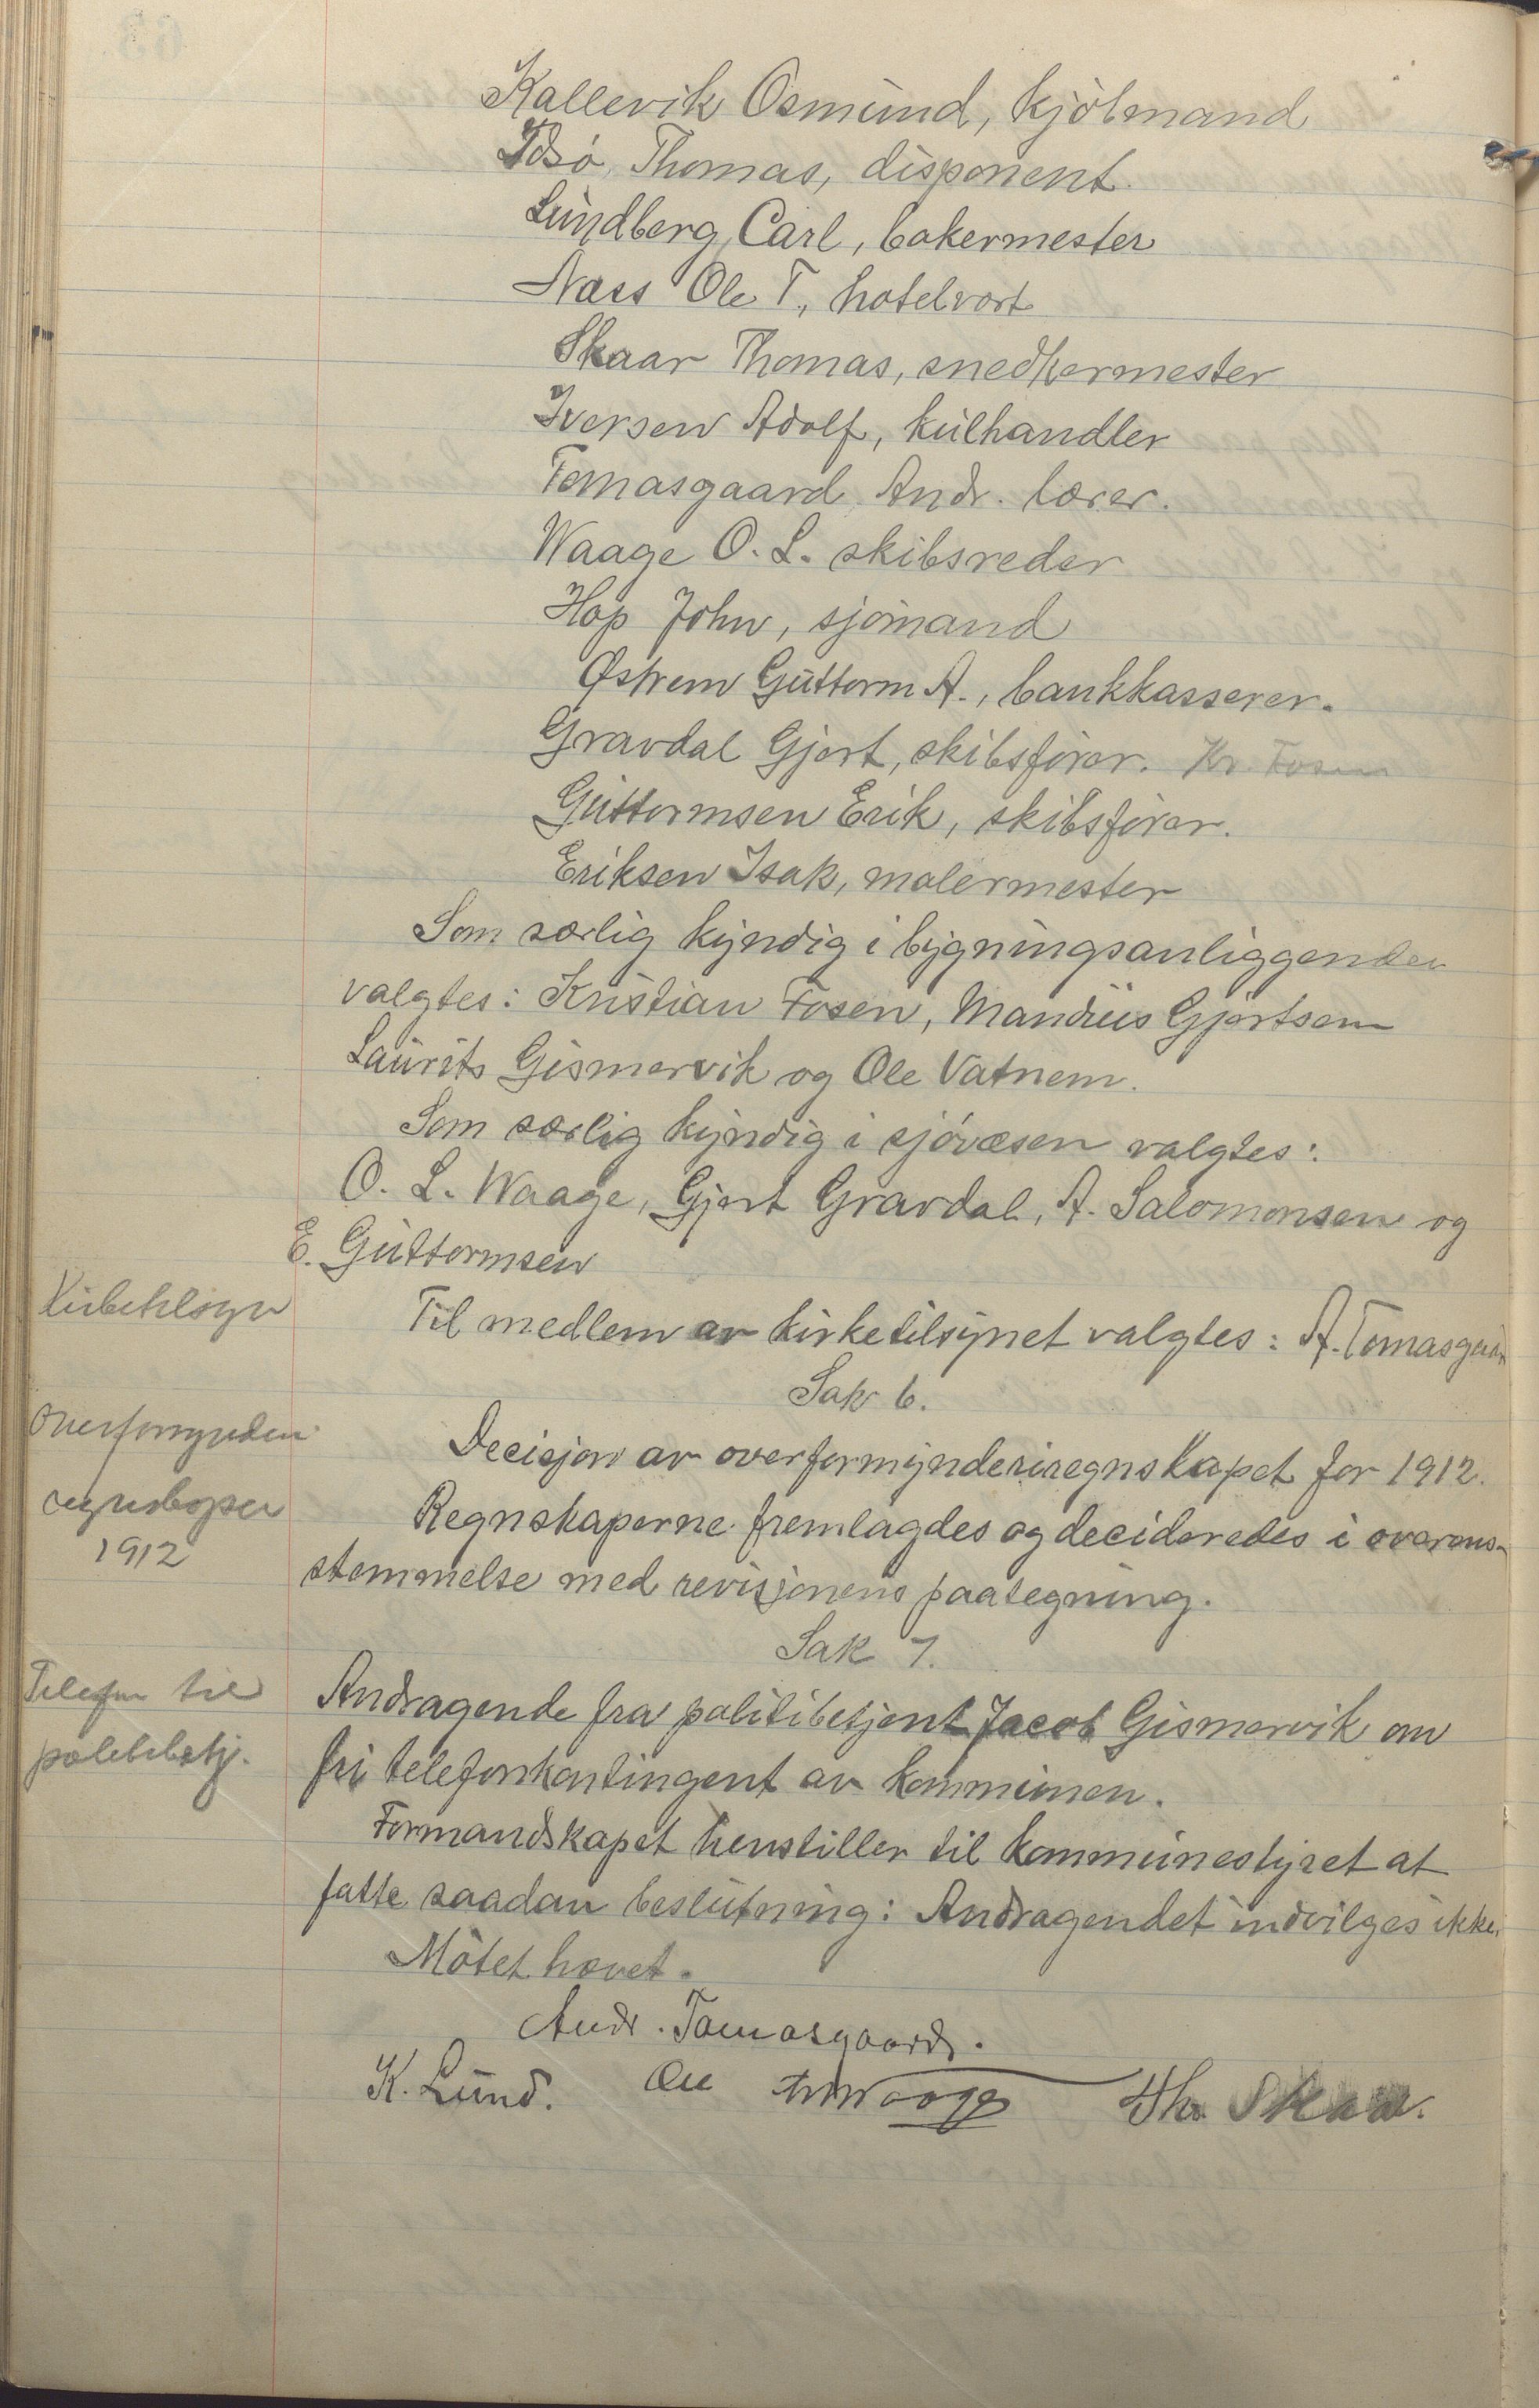 Kallevik Osmund, kjøbmand
Idsø, Thomas, disponent.
Lundberg, Carl, bakermester
Næss Ole T., hotelvært
Skaar Thomas, snedkermester
Iversen Adolf, kulhandler
Tomasgaard, Andr. lærer.
Waage O. L. skibsreder
Hop John, sjømand
Østrem Guttorm A., bankkasserer.
Gravdal Gjert, skibsfører. Kr. Fosen
Guttormsen Erik, skibsfører.
Eriksen Isak, malermester
Som særlig kyndig i bygningsanliggender
valgtes: Kristian Fosen, Mandius Gjertsen
Laurits Gismervik og Ole Vatnem.
Som særlig kyndig i sjøvæsen valgtes:
O. L. Waage, Gjert Gravdal, A. Salomonsen og
E. Guttormsen
Kirketilsyn
Til medlem av kirketilsynet valgtes: A. Tomasgaard
Sak 6.
Overformynderi
regnskaper
1912
Decisjon av overformynderiregnskapet for 1912.
Regnskaperne fremlagdes og decideredes i overens-
stemmelse med revisjonens paategning.
Sak 7.
Telefon til
politibetj.
Andragende fra politibetjent Jacob Gismervik om
fri telefonkontingent av kommunen.
Formandskapet henstiller til kommunestyret at
fatte saadan beslutning: Andragendet indvilges ikke.
Møtet hævet.
Andr. Tomasgaard.
K. Lund. Waage Th. Skaar.